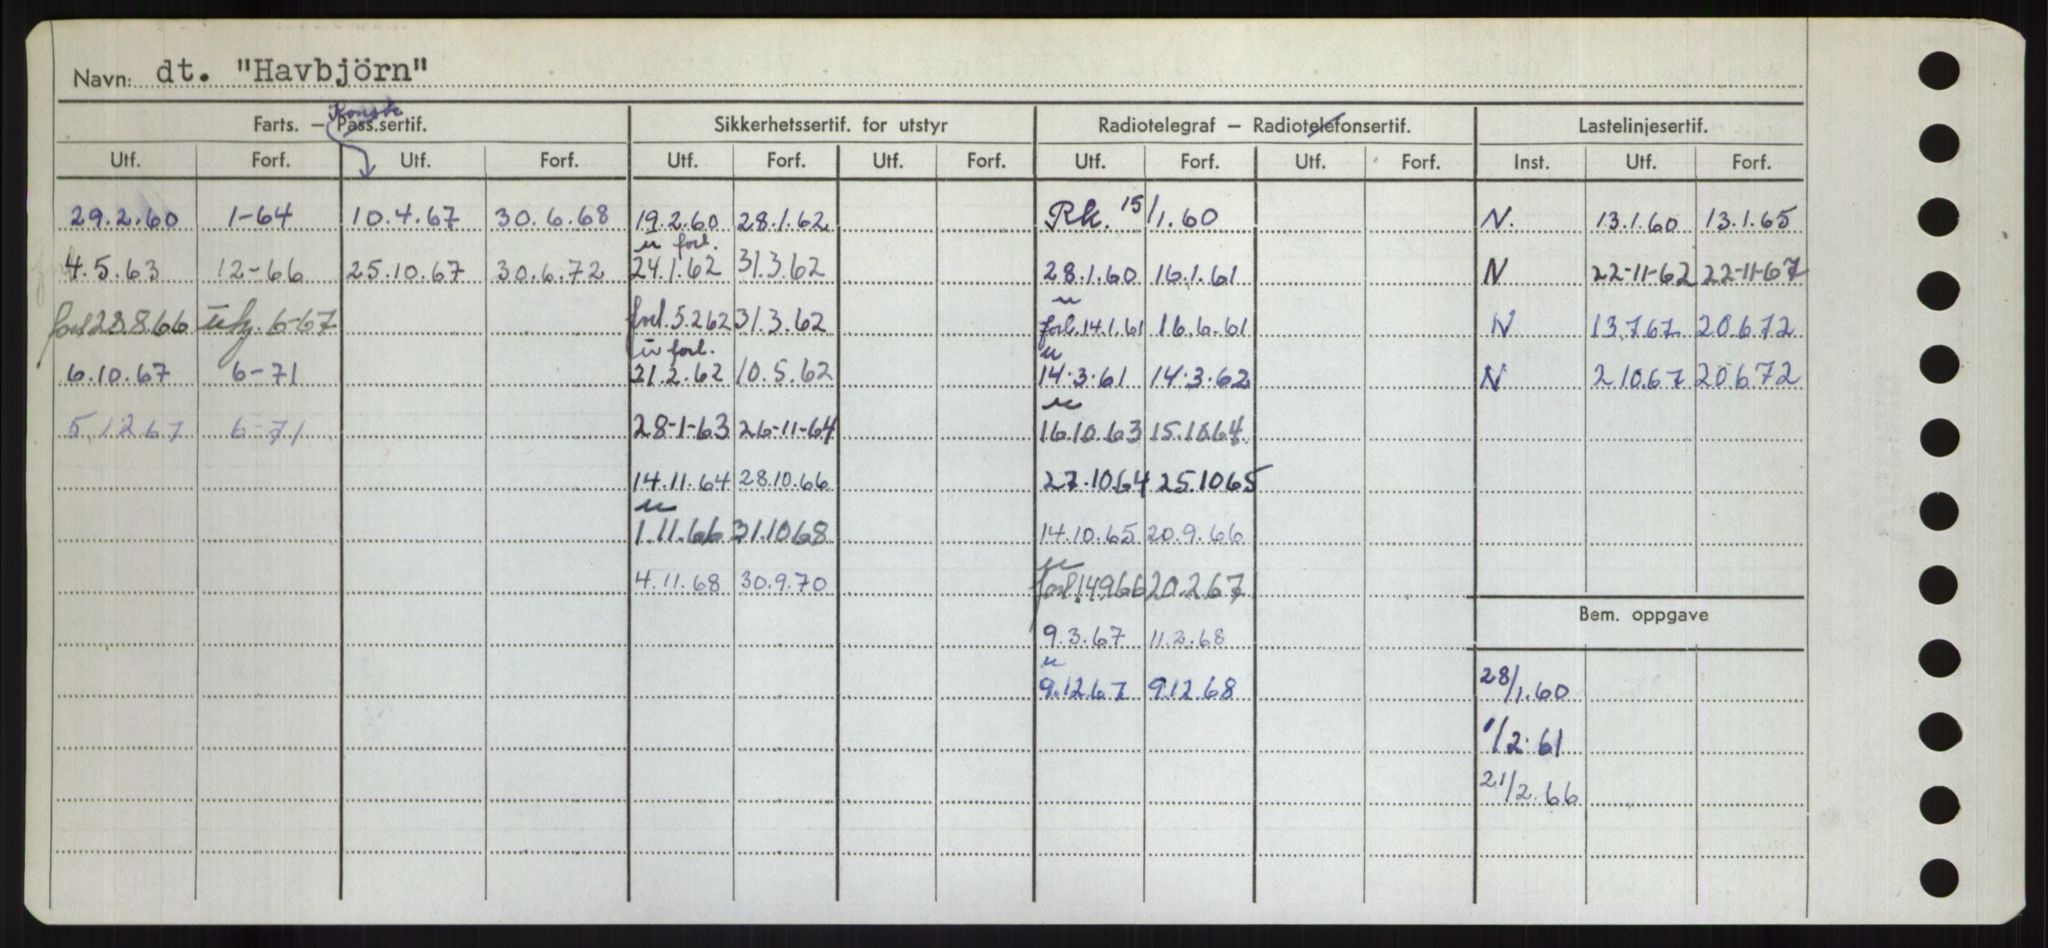 Navn: dt. "Havbjörn"
Konstr.
Farts. — Pass.sertif. Sikkerhetssertif. for utstyr Radiotelegraf — Radiotelefonsertif. Lastelinjesertif.
Utf. Forf. Utf. Forf. Utf. Forf. Utf. Forf. Utf. Forf. Utf. Forf. Inst. Utf. Forf.
29.2.60 1-64 10.4.67 30.6.68 19.2.60 28.1.62 Rk. 15/1.60 N. 13.1.60 13.1.65
u forl.
4.5.63 12-66 25.10.67 30.6.72 24.1.62 31.3.62 28.1.60 16.1.61 N 22-11-62 22-11-67
u
forl 28.8.66 6-67 forl. 5.2.62 31.3.62 forl. 14.1.61 16.6.61 N 13.7.67 20.6.72
u forl. u
6.10.67 6-71 21.2.62 10.5.62 14.3.61 14.3.62 N 2.10.67 20.6.72
u
5.12.67 6-71 28-1-63 26-11-64 16.10.63 15.10.64
14.11.64 28.10.66 27.10.64 25.10.65
u
1.11.66 31.10.68 14.10.65 20.9.66
u
4.11.68 30.9.70 forl 14.9.66 20.2.67
Bem. oppgave
9.3.67 11.2.68
u
9.12.67 9.12.68 28/1.60
1/2.61
21/2.66